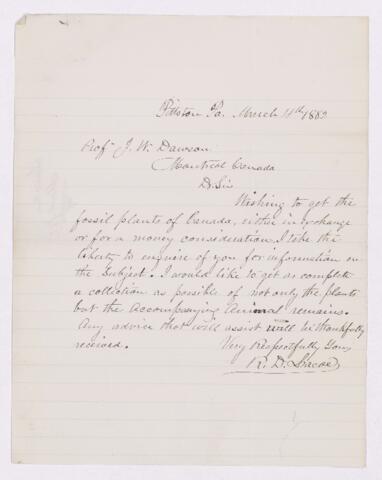 Pittston Pa. March 11th 1882
Prof J. W. Dawson
Montreal Canada
D. Sir
Wishing to get the
fossil plants of Canada, either in exchange
or for a money consideration, I take the
liberty to enquire of you for information on
the subject. I would like to get as complete
a collection as possible of not only the plants
but the accompanying animal remains.
Any advice that will assist will be thankfully
received.
Very Respectfully Yours
R. D. Lacoe